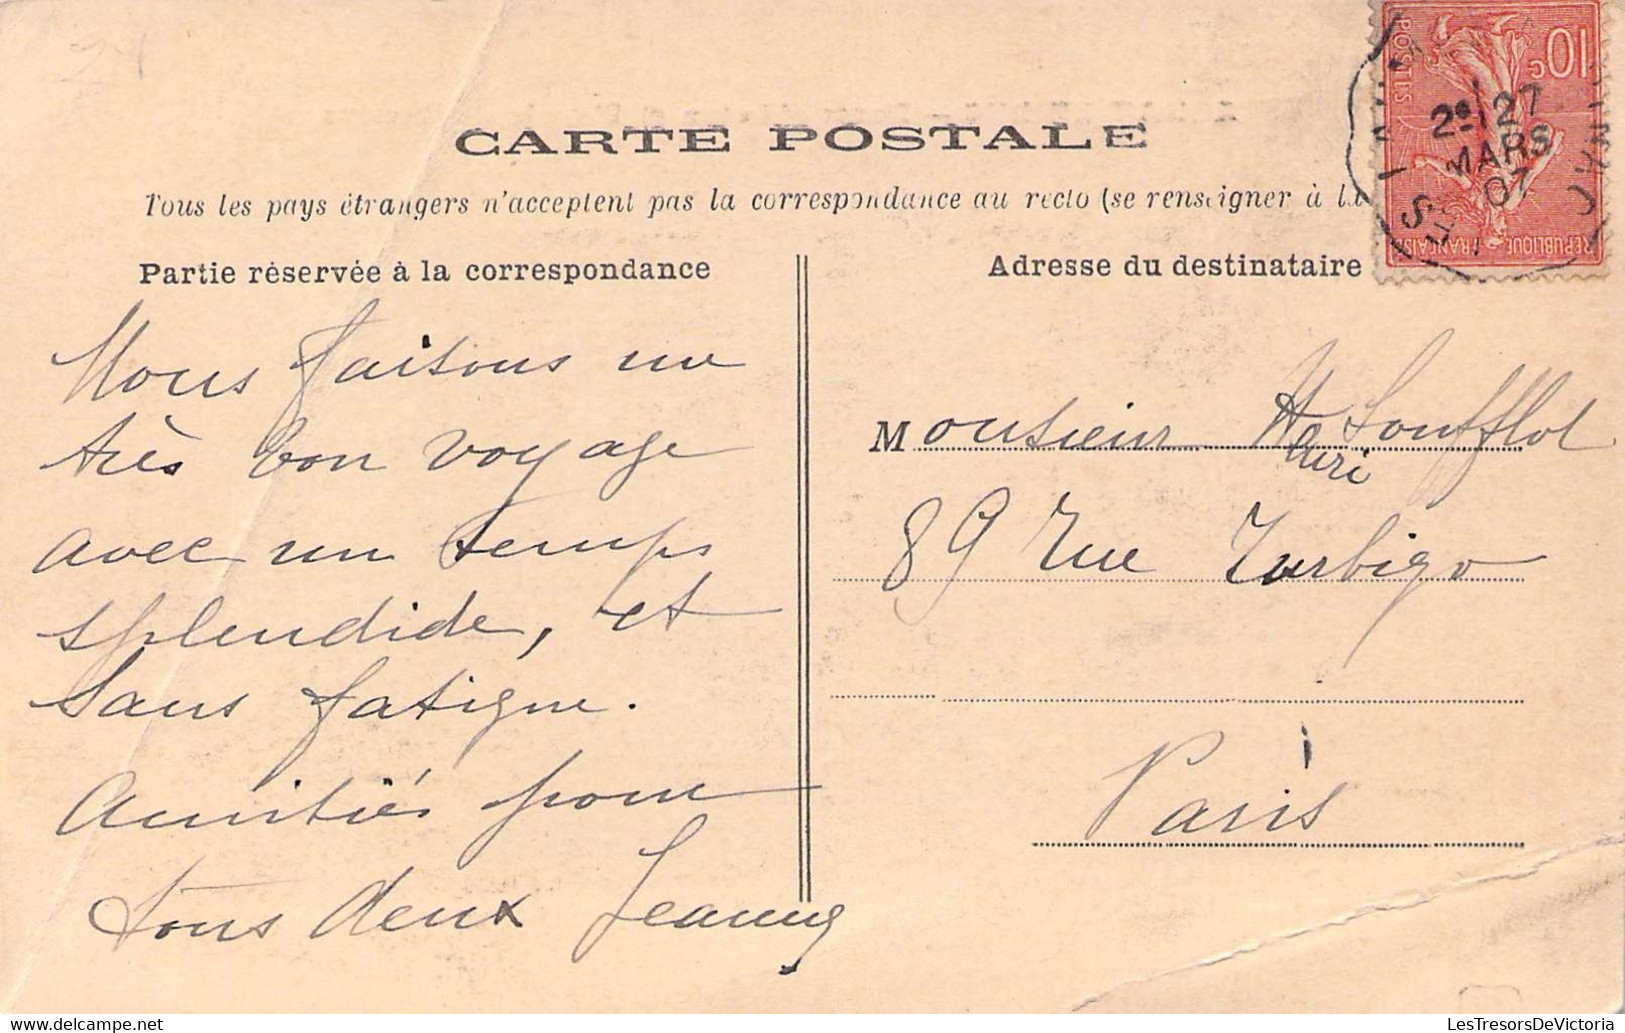 CARTE POSTALE
Tous les pays étrangers n'acceptent pas la correspondance au recto (se renseigner à la
Partie réservée à la correspondance
Nous faisons un
très bon voyage
avec un temps
splendide, et
sans fatigue.
Amitiés pour
tous deux Jeanne
Adresse du destinataire
Monsieur Henri Soufflot
89 rue Turbigo
Paris
10c
POSTES
REPUBLIQUE FRANÇAISE
2e 27
MARS
07
LesTresorsDeVictoria